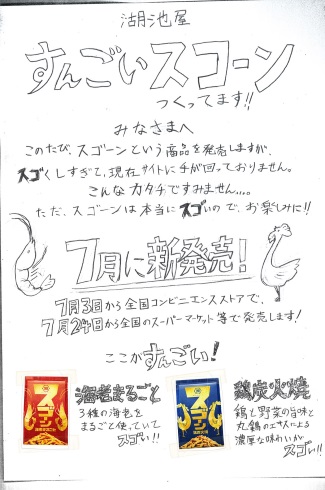 湖池屋
すんごいスコーン
つくってます!!
みなさまへ
このたび、スゴーンという商品を発売しますが、
スゴくしすぎて、現在サイトに手が回っておりません。
こんなカタチですみません....。
ただ、スゴーンは本当にスゴいので、お楽しみに!!
7月に新発売!
7月3日から全国コンビニエンスストアで、
7月24日から全国のスーパーマケット等で発売します!
ここがすんごい!
海老まるごと
3種の海老を
まるごと使っていて
スゴい!!
鶏炭火焼
鶏と野菜の旨味と
丸鶏のエキスによる
濃厚な味わいが
スゴい!!
スゴーン
スゴーン